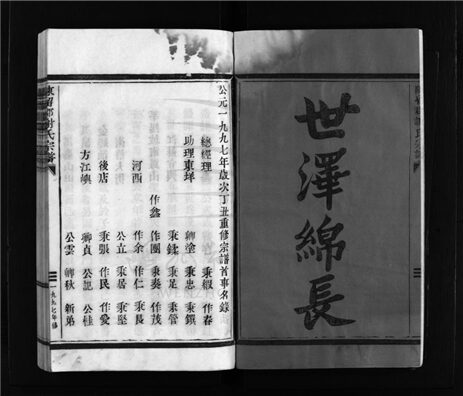 世澤綿長
公元一九九七年歲次丁丑重修宗譜首事名錄
總經理 秉緞 作春
助理東坪 卿塗 秉忠 秉鎖
秉鍒 秉足 秉管
作鑫 作團 秉奏 作茂
河西 作余 作仁 秉長
公立 秉居 秉堅
後店 秉張 作民 作愛
方江嶼 卿貞 公記 公桂
公雲 卿秋 新弟
一九九七年修